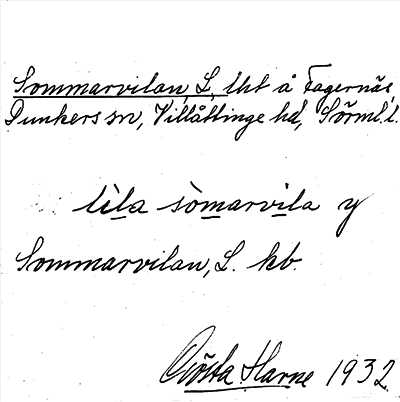 Sommarvilan, L. lht å Fagernäs
Dunkers sn, Villåttinge hd, Sörml. l.
lìla sòmarvila y
Sommarvilan, L. kb.
Gösta Harne 1932